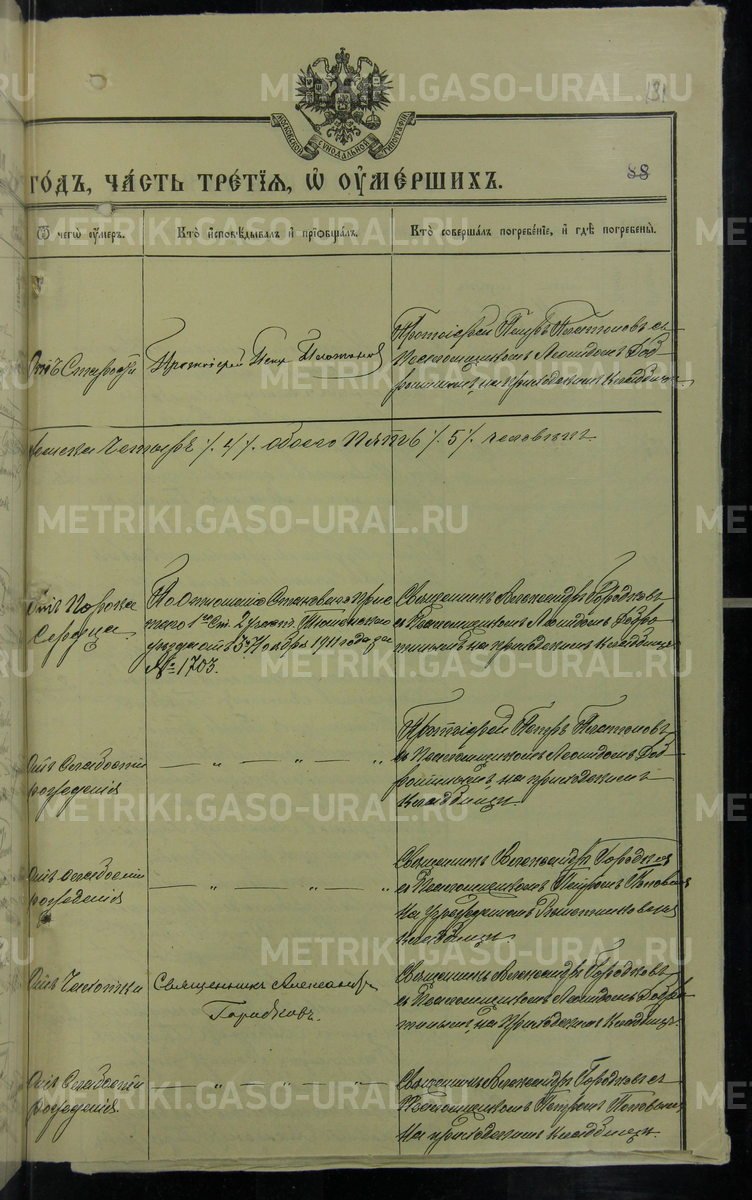 131
МОСКОВСКОЙ СѴНОДАЛЬНОЙ ТИПОГРАФІИ
88
го́дъ, ча́сть тре́тїѧ, ѡ҆ ᲂу҆ме́ршихъ.
Ѿ чегѡ̀ ᲂу҆́мерь.
Кто̀ и҆сповѣ́дывалъ и҆ прїѡбща́лъ.
Кто̀ соверша́лъ погребе́нїе, и҆ гдѣ̀ погребены̀.
Отъ Старости
Протоіерей Петръ Платоновъ
Протоіерей Петръ Платоновъ съ
Псаломщикомъ Леонидомъ Доб
ротинымъ, на приходскомъ кладбищѣ
Женска Четыре /. 4 /. обоего Пять /. 5 /. человѣкъ
Отъ Порока
Сердца.
По Отношенію Становаго Прис
тава 1го Ст. 2 участ.
уѣзда отъ 3го Ноября 1911 года за
№ 1703.
Священникъ Александръ Городковъ
съ Псаломщикомъ Леонидомъ Добро
тинымъ на приходскомъ кладбищѣ
Отъ Слабости
рожденія
— „ — „ — „
Протоіерей Петръ Платоновъ
съ Псаломщикомъ Леонидомъ Доб
ротинымъ, на приходскомъ
кладбищѣ
Отъ слабости
рожденія
— „ — „ — „
Священникъ Александръ Городковъ
съ Псаломщикомъ Петромъ Поповымъ
На
кладбищѣ.
Отъ Чахотки
Священникъ Александръ
Городковъ.
Священникъ Александръ Городковъ
съ Псаломщикомъ Леонидомъ Добро
тинымъ, на Приходскомъ кладбищѣ.
Отъ Слабости
рожденія
— „ — „ — „ —
Священникъ Александръ Городковъ съ
Псаломщикомъ Петромъ Поповымъ,
На приходскомъ кладбищѣ.
METRIKI.GASO-URAL.RU